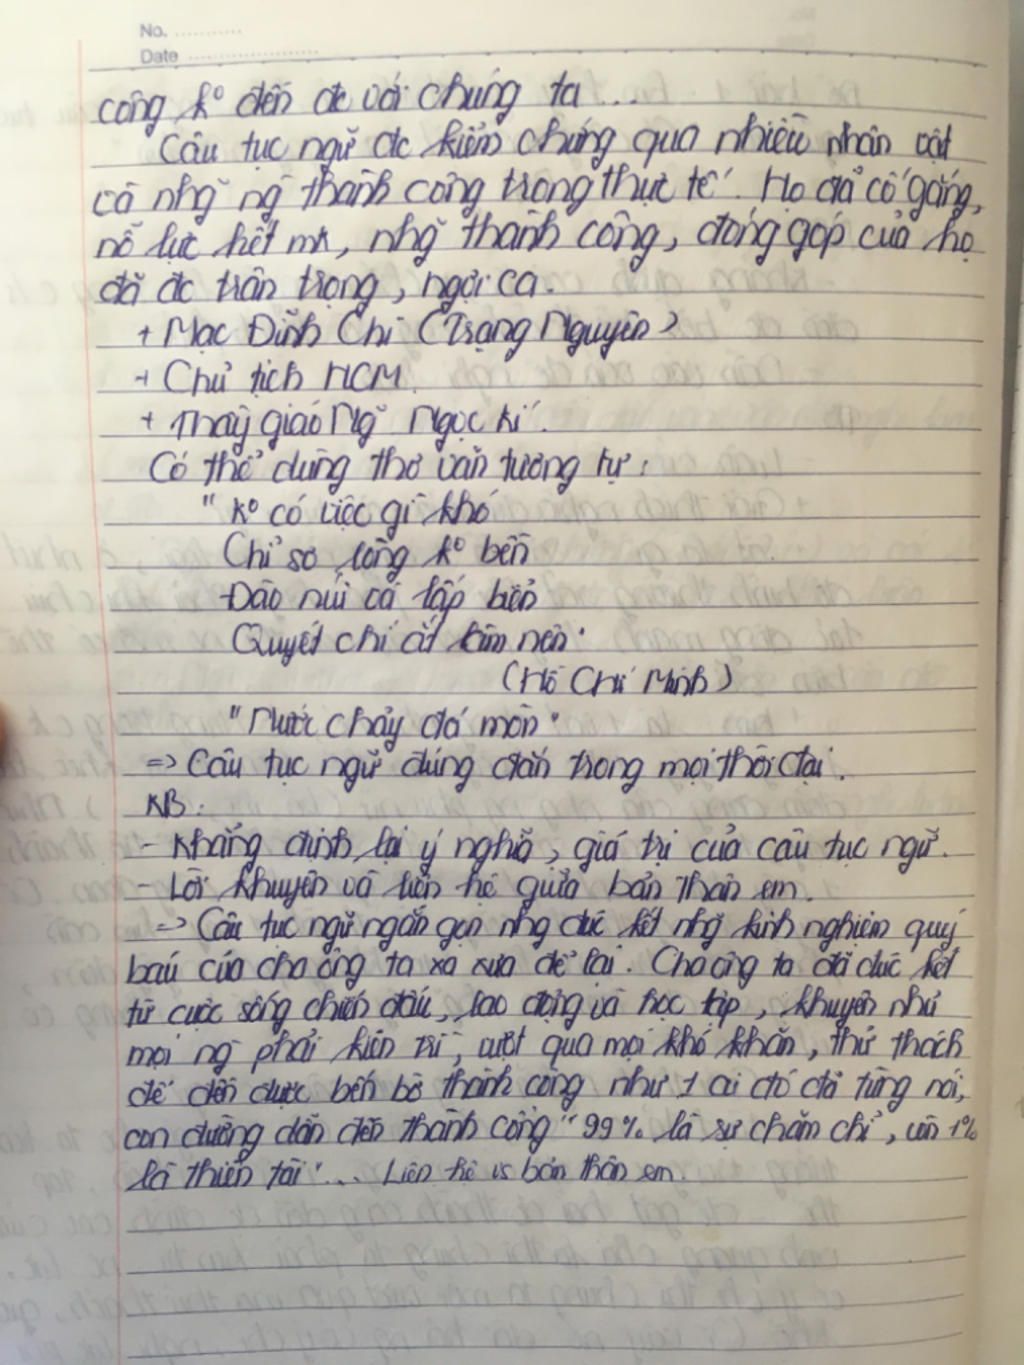 No. ...........
Date ......................
công k° đến đc với chúng ta ...
Câu tục ngữ đc kiểm chứng qua nhiều nhân vật
cả nhg̃ ng̀ thành công trong thực tế. Họ đã cố gắng,
nỗ lực hết mh, nhg̃ thành công, đóng góp của họ
đã đc trân trọng, ngợi ca.
+ Mạc Đĩnh Chi (Trạng Nguyên)
+ Chủ tịch HCM.
+ Thầy giáo Ng̃ Ngọc Kí.
Có thể dùng thơ văn tương tự:
" K° có việc gì khó
Chỉ sợ lòng k° bền
Đào núi và lấp biển
Quyết chí ắt làm nên"
(Hồ Chí Minh)
"Nước chảy đá mòn"
=> Câu tục ngữ đúng đắn trong mọi thời đại.
KB:
- Khẳng định lại ý nghĩa, giá trị của câu tục ngữ.
- Lời khuyên và liên hệ giữa bản thân em.
=> Câu tục ngữ ngắn gọn nhg đúc kết nhg̃ kinh nghiệm quý
báu của cha ông ta xa xưa để lại. Cha ông ta đã đúc kết
từ cuộc sống chiến đấu, lao động và học tập, khuyên nhủ
mọi ng̀ phải kiên trì, vượt qua mọi khó khăn, thử thách
để đến được bến bờ thành công như 1 ai đó đã từng nói,
con đường dẫn đến thành công "99% là sự chăm chỉ, còn 1%
là thiên tài"... Liên hệ vs bản thân em.